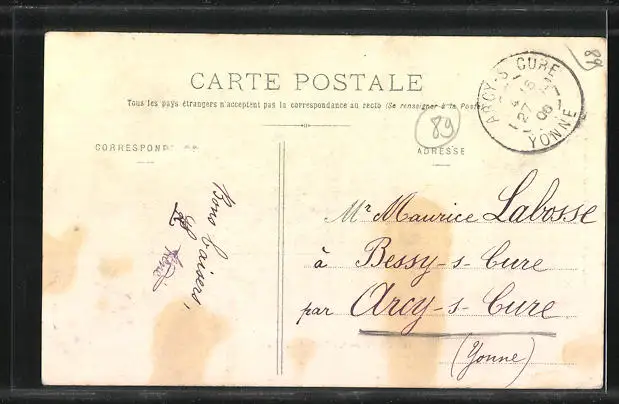 89
ARCY-S-CURE
27
06
YONNE
CARTE POSTALE
Tous les pays étrangers n'acceptent pas la correspondance au recto (Se renseigner à la Poste)
89
CORRESPONDANCE
ADRESSE
Mr Maurice Labosse
à Bessy-s-Cure
par Arcy-s-Cure
(Yonne)
Bons baisers,